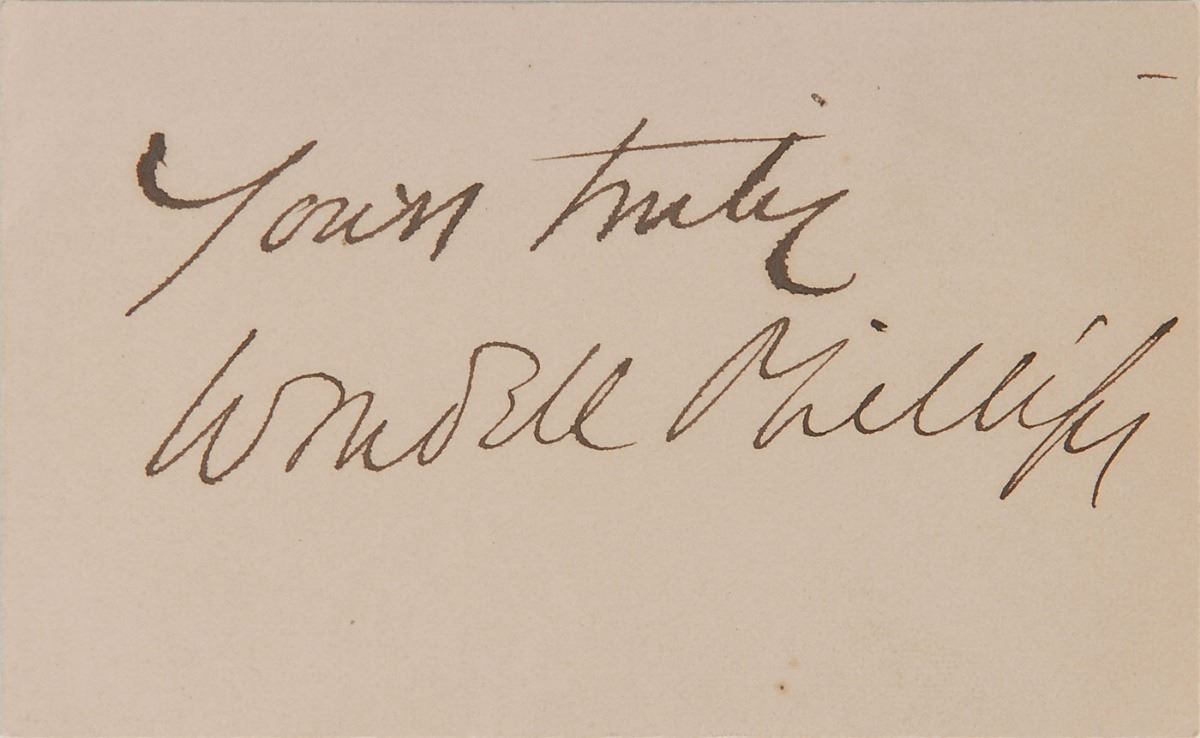 Yours truly
Wendell Phillips